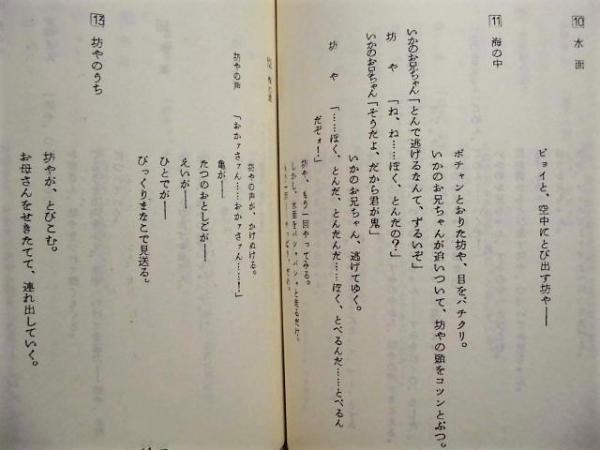 10 水面
ピョイと、空中にとび出す坊や──
11 海の中
ボチャンとおりた坊や、目をパチクリ。
いかのお兄ちゃんが追いついて、坊やの頭をコツンとぶつ。
いかのお兄ちゃん「とんで逃げるなんて、ずるいぞ」
坊や「ね、ね……ぼく、とんだの?」
いかのお兄ちゃん「そうだよ、だから君が鬼」
いかのお兄ちゃん、逃げてゆく。
坊や「……ぼく、とんだ、とんだんだ……ぼく、とべるんだ……とべるん
だぞォ!」
坊や、もう一回やってみる。
しかし、水面をバシャバシャと走るだけ。
坊やの声「おかァさァん……おかァさァん……!」
坊やの声が、かけぬける。
亀が──
たつのおとしごが──
えいが──
ひとでが──
びっくりまなこで見送る。
13 坊やのうち
坊やが、とびこむ。
お母さんをせきたてて、連れ出していく。